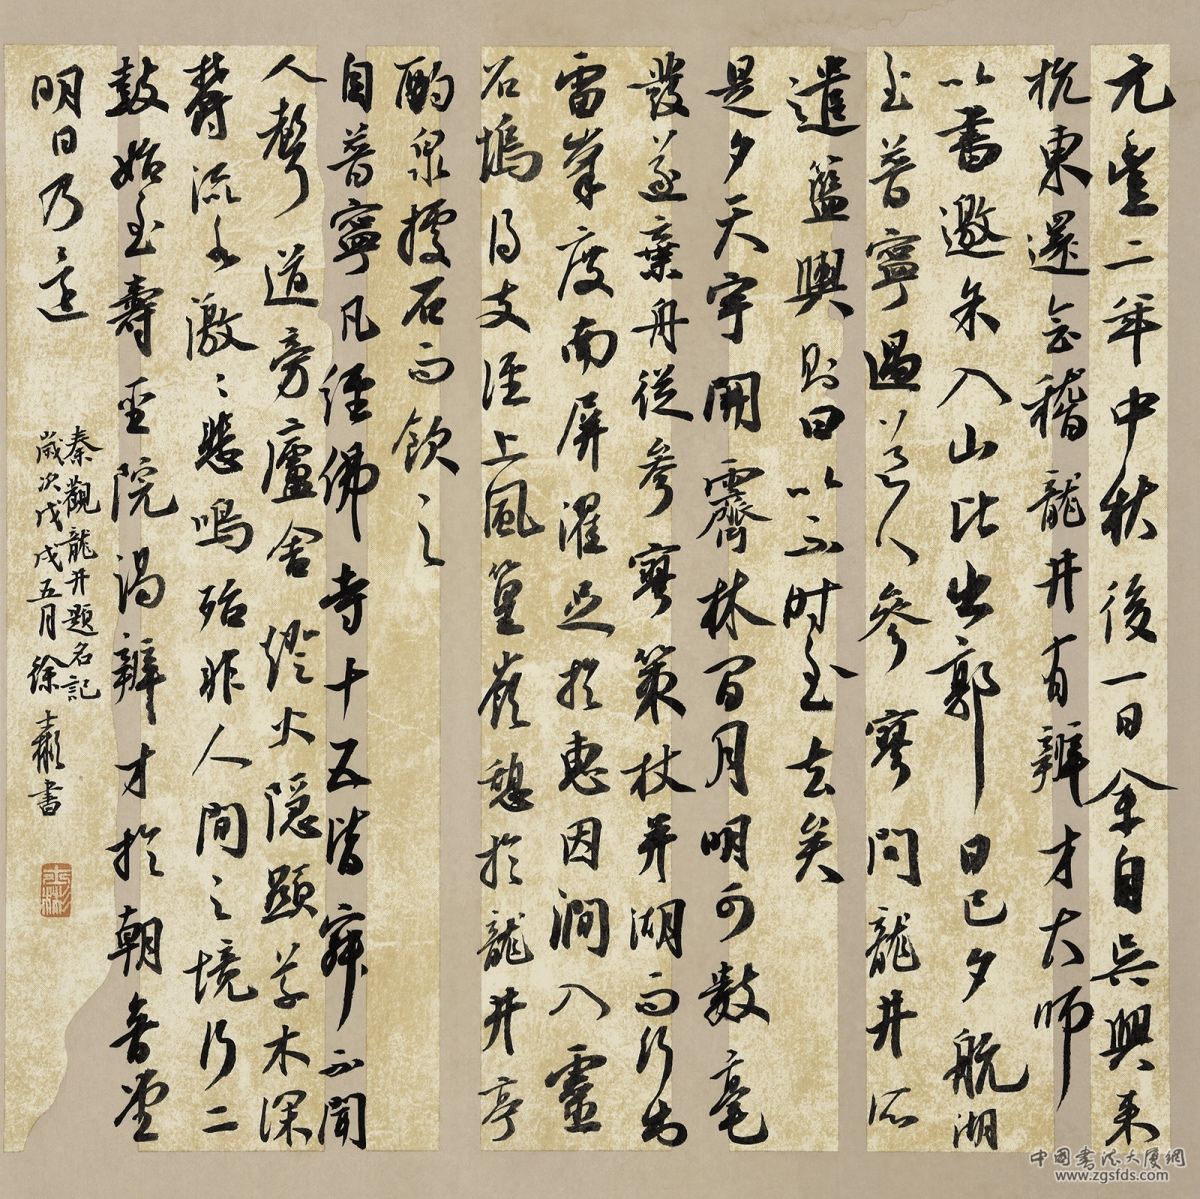 元豐二年中秋後一日余自吳興来
杭東還會稽龍井有辯才大師
以書邀余入山比出郭日已夕航湖
至普寧遇道人參寥問龍井所
遣籃輿則曰以不時至去矣
是夕天宇開霽林間月明可數毫
髮遂棄舟從參寥策杖并湖而行出
雷峯度南屏濯足於惠因澗入靈
石塢得支徑上風篁嶺憩於龍井亭
酌泉據石而飲之
自普寧凡經佛寺十五皆寂不聞
人聲道旁廬舍燈火隱顯草木深
鬱流水激〻悲鳴殆非人間之境行二
鼓始至壽聖院謁辯才於朝音堂
明日乃還
秦觀龍井題名記
歲次戊戌五月徐士彬書
士彬
中國書法大廈網
www.zgsfds.com